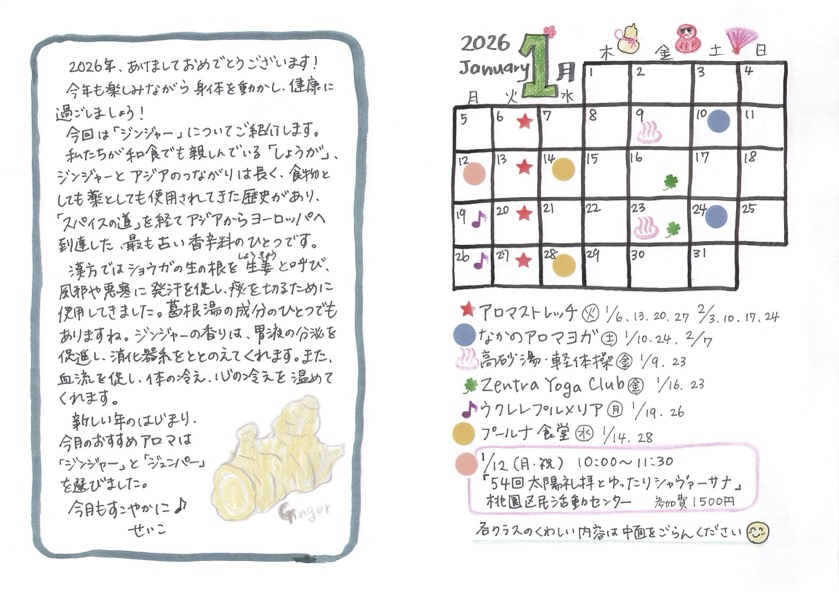 2026年、あけましておめでとうございます！
今年も楽しみながら身体を動かし、健康に
過ごしましょう！
今回は「ジンジャー」についてご紹介します。
私たちが和食でも親しんでいる「しょうが」、
ジンジャーとアジアのつながりは長く、食物と
しても薬としても使用されてきた歴史があり、
「スパイスの道」を経てアジアからヨーロッパへ
到達した、最も古い香辛料のひとつです。
漢方ではショウガの生の根を生姜と呼び、
しょうきょう
風邪や悪寒に発汗を促し、痰を切るために
使用してきました。葛根湯の成分のひとつでも
ありますね。ジンジャーの香りは、胃液の分泌を
促進し、消化器系をととのえてくれます。また、
血流を促し、体の冷え、心の冷えを温めて
くれます。
新しい年のはじまり、
今月のおすすめアロマは
「ジンジャー」と「ジュンパー」
を選びました。
今月もすこやかに♪
せいこ
Ginger
2026
January 1月
月 火 水 木 金 土 日
1 2 3 4
5 6 7 8 9 10 11
12 13 14 15 16 17 18
19 20 21 22 23 24 25
26 27 28 29 30 31
アロマストレッチ 火 1/6.13.20.27 2/3.10.17.24
なかのアロマヨガ 土 1/10.24. 2/7
高砂湯・軽体操 金 1/9.23
Zentra Yoga Club 金 1/16.23
ウクレレプルメリア 月 1/19.26
プールナ食堂 水 1/14.28
1/12(月・祝) 10:00〜11:30
「54回太陽礼拝とゆったりシャヴァーサナ」
桃園区民活動センター 参加費1500円
各クラスのくわしい内容は中面をごらんください